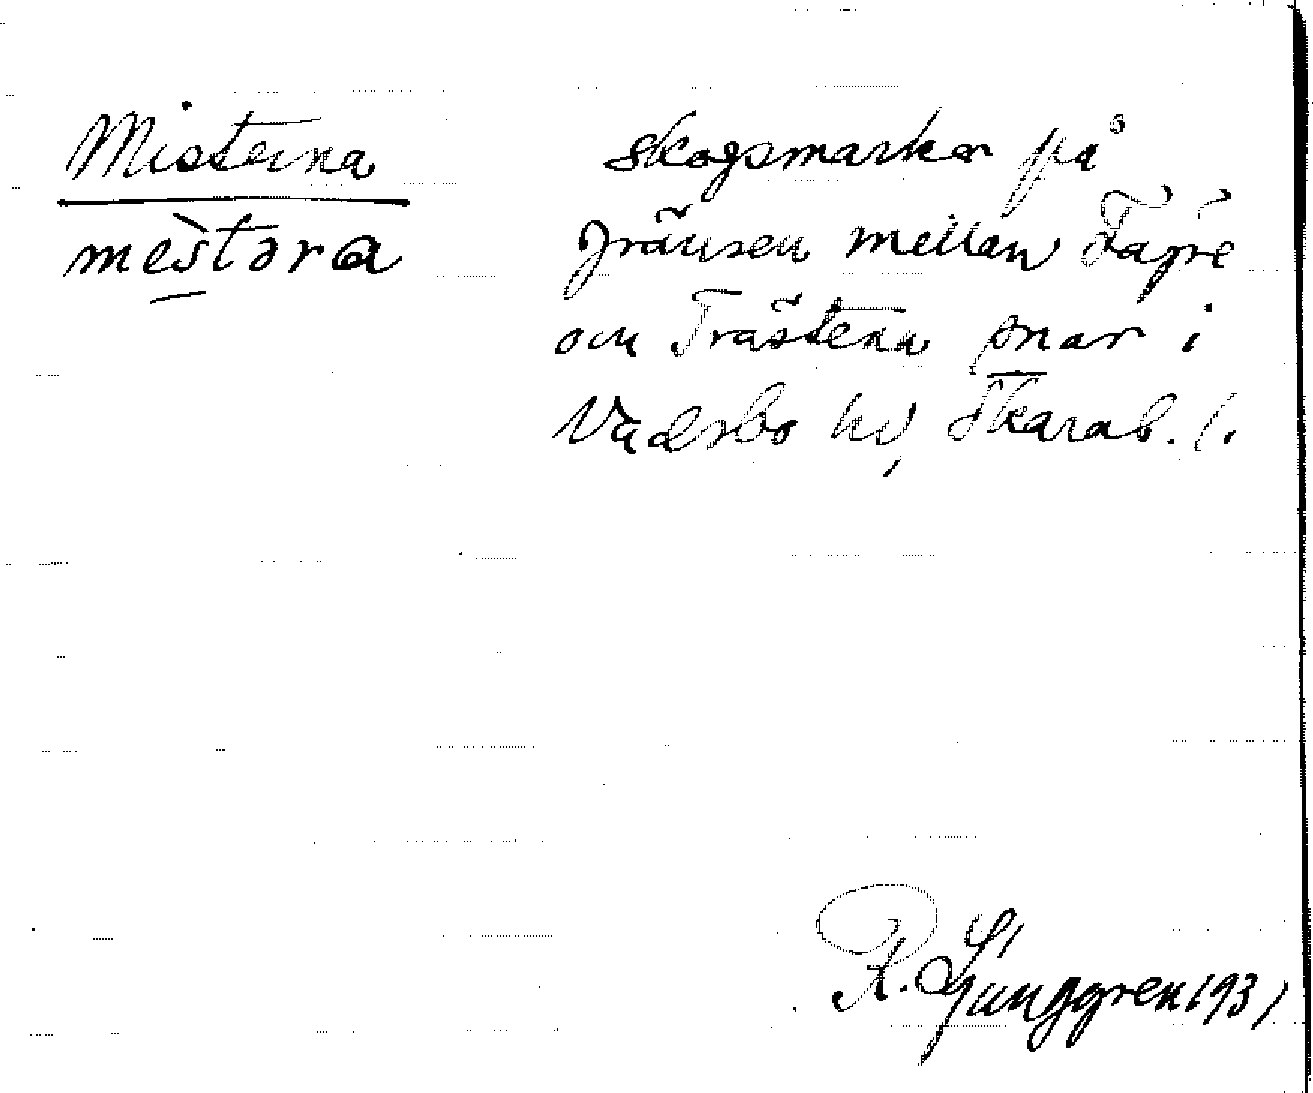 Misterna
mèstəra
skogsmarker på
gränsen mellan Fägre
och Trästena snar i
Vadsbo hd, Skarab. l.
R. Ljunggren 1931